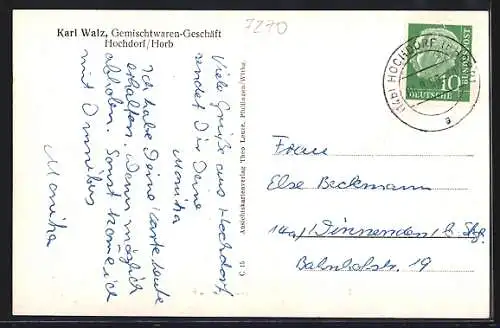 Karl Walz, Gemischtwaren-Geschäft
Hochdorf/Horb
7270
Viele Grüße aus Hochdorf,
sendet Dir Deine
Monika
Ich habe Deine Karte heute
erhalten. Wenn möglich
abholen. Sonst komme ich
mit Omnibus
Monika
Ansichtskartenverlag Theo Leuze, Pfullingen/Wttbg.
C 15
(14b) HOCHDORF
a
DEUTSCHE BUNDESPOST
10
Frau
Else Beckmann
14a) Winnenden b. Stgt.
Bahnhofstr. 19